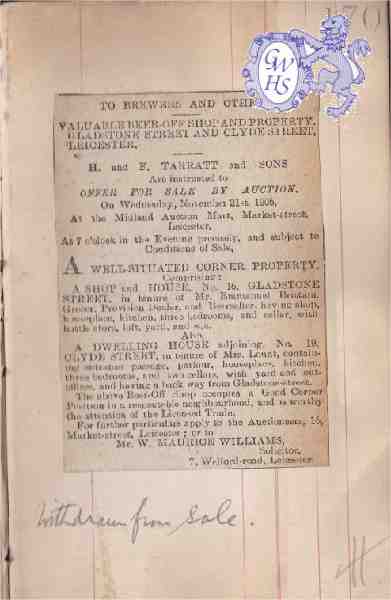 170
GWHS
TO BREWERS AND OTHE
VALUABLE BEER-OFF SHOP AND PROPERTY,
GLADSTONE STREET AND CLYDE STREET,
LEICESTER.
H. and F. TARRATT and SONS
Are instructed to
OFFER FOR SALE BY AUCTION,
On Wednesday, November 21st, 1906,
At the Midland Auction Mart, Market-street,
Leicester,
At 7 o'clock in the Evening promptly, and subject to
Conditions of Sale,
A WELL-SITUATED CORNER PROPERTY,
Comprising:
A SHOP and HOUSE, No. 16, GLADSTONE
STREET, in tenure of Mr. Emmanuel Brittain,
Grocer, Provision Dealer, and Beerseller, having shop,
houseplace, kitchen, three bedrooms, and cellar, with
bottle store, loft, yard, and w.c.
Also
A DWELLING HOUSE adjoining, No. 19,
CLYDE STREET, in tenure of Mrs. Lount, contain-
ing entrance passage, parlour, houseplace, kitchen,
three bedrooms, and two cellars, with yard and out-
offices, and having a back way from Gladstone-street.
The above Beer-Off Shop occupies a Good Corner
Position in a respectable neighbourhood, and is worthy
the attention of the Licensed Trade.
For further particulars apply to the Auctioneers, 16,
Market-street, Leicester; or to
Mr. W. MAURICE WILLIAMS,
Solicitor,
7, Welford-road, Leicester.
Withdrawn from Sale.